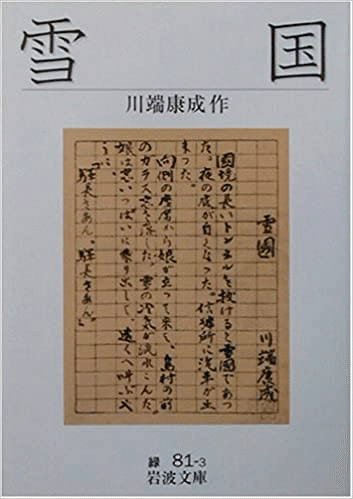 雪国
川端康成作
雪國
川端康成
國境の長いトンネルを抜けると雪國であつ
た。夜の底が白くなつた。信號所に汽車が止
まつた。
向側の座席から娘が立つて来て、島村の前
のガラス窓を落した。雪の冷氣が流れこんだ。
娘は窓いつぱいに乗り出して、遠くへ叫ぶや
うに、
「驛長さあん、驛長さあん。」
緑 81-3
岩波文庫